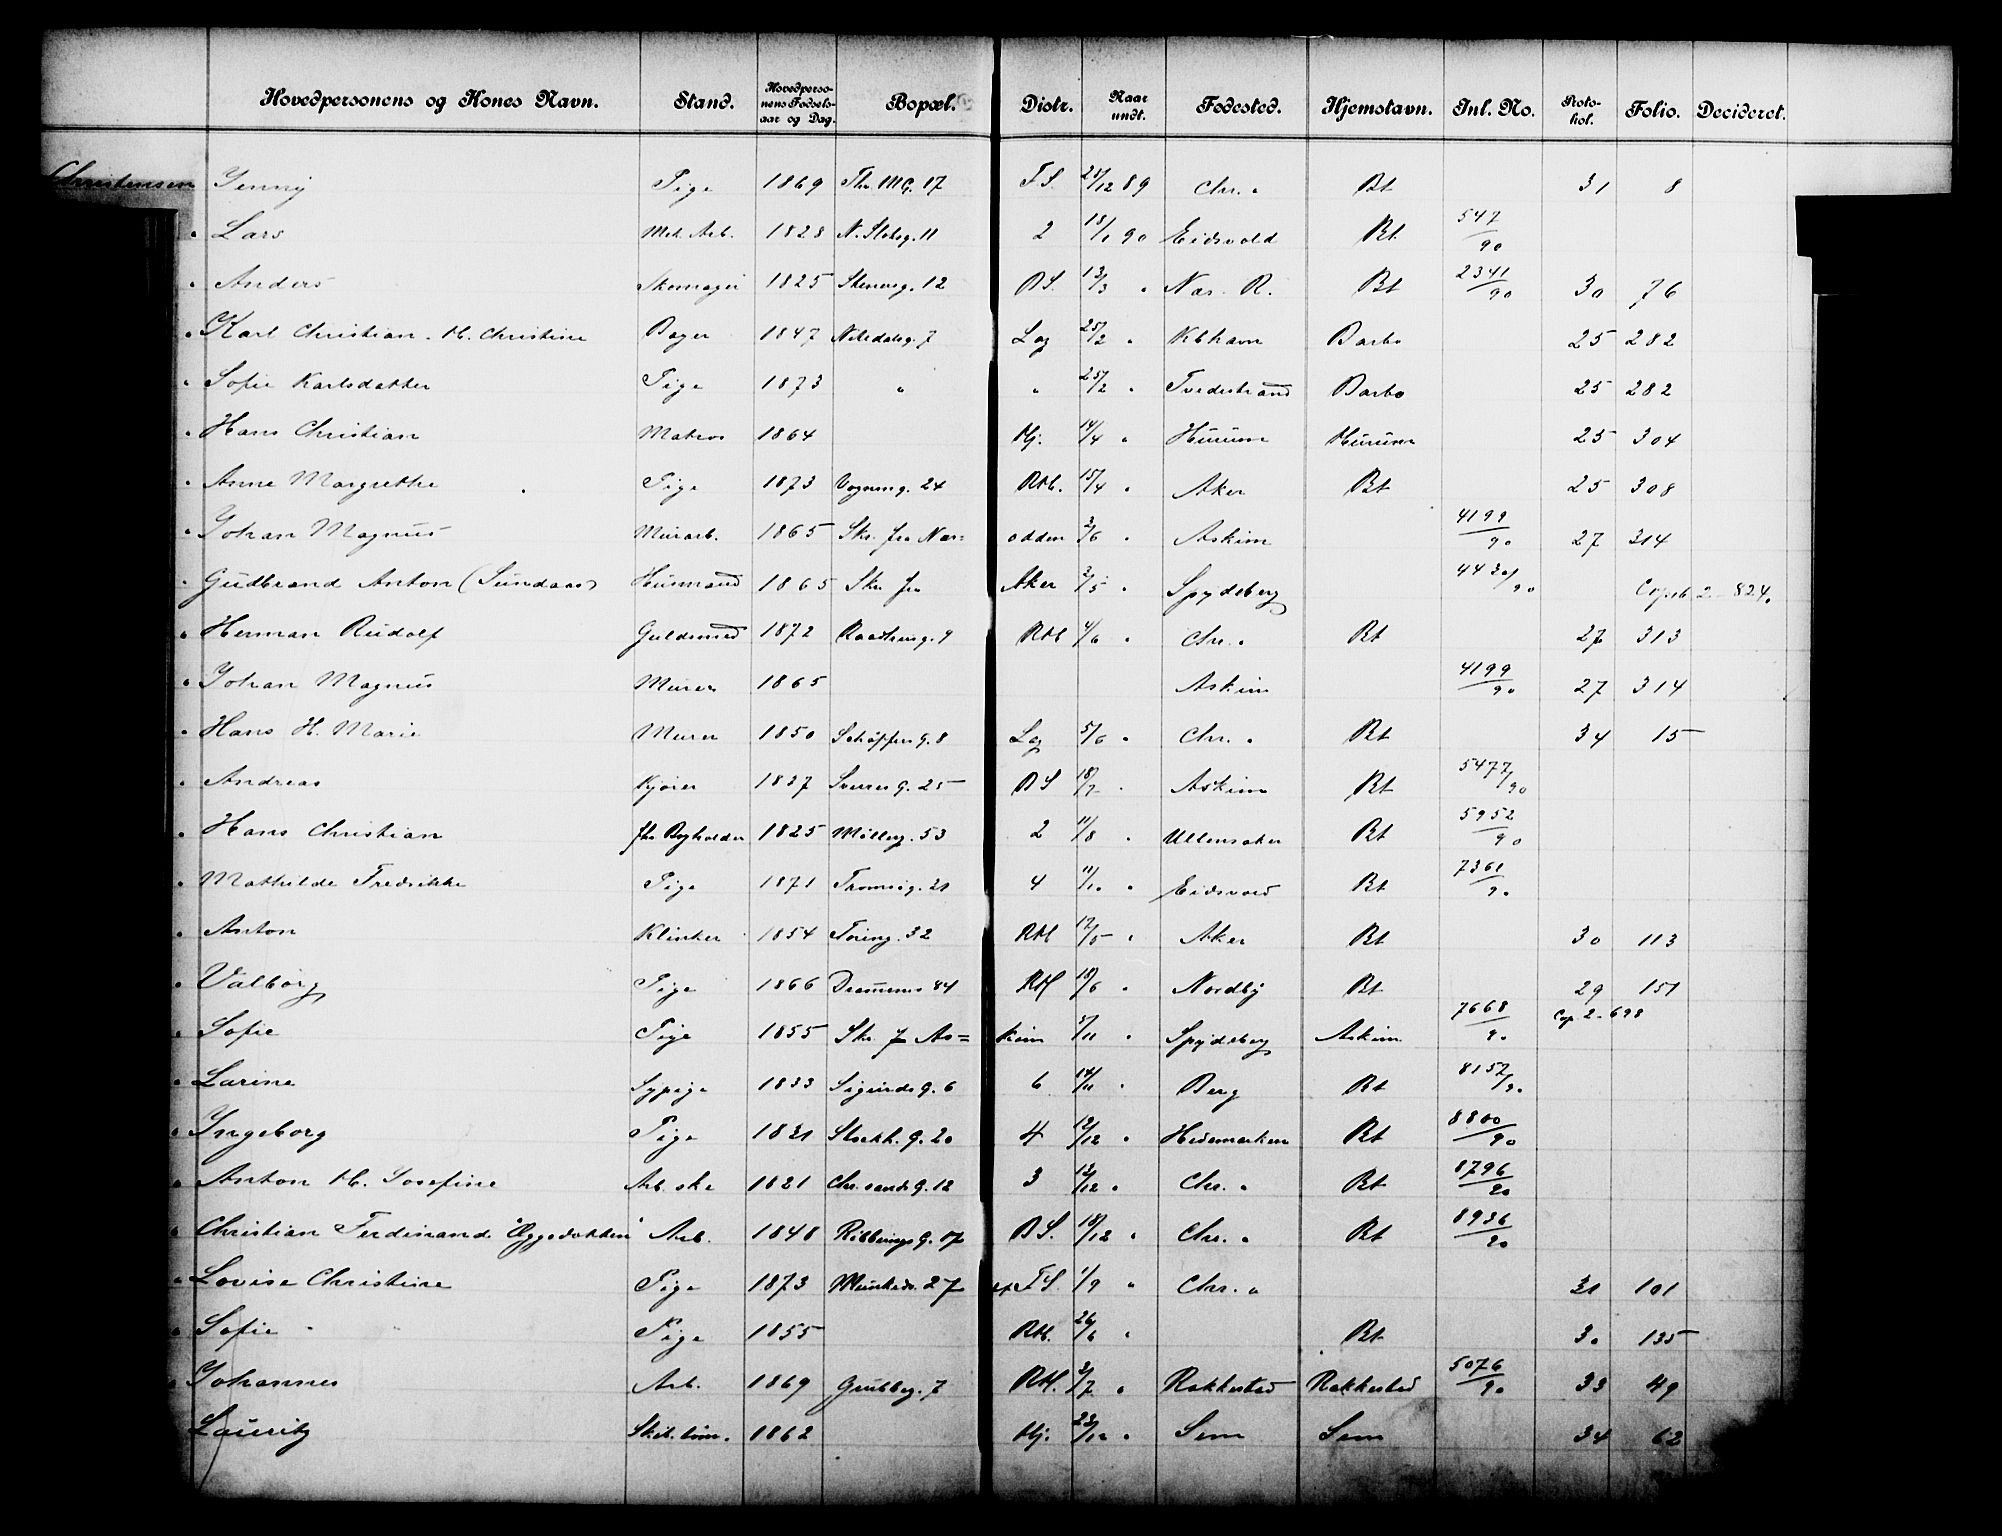 Hovedpersonens og Kones Navn. Stand. Hovedpersonens Fødselsaar og Dag. Bopæl. Distr. Naar undt. Fødested. Hjemstavn. Inl. No. Protokol. Folio. Decideret.
Christensen Jenny Pige 1869 Th. M G. 17 F S. 21/12 89 Chr. " Bt 31 8
" Lars Mek. Arb. 1828 N. Slotsg. 11 2 18/1 90 Eidsvold Bt. 547/90
" Anders Skomager 1825 Stenersg. 12 B S. 13/3 " Næs. R. Bt 2341/90 30 76
" Karl Christian. H. Christine Bager 1847 Nitedalsg. 7 Lag 25/2 " Kbhavn Barbo 25 282
" Sofie Karlsdatter Pige 1873 " " 25/2 " Tvedestrand Barbo 25 282
" Hans Christian Matros 1864 Hj. 14/4 " Hurum Hurum 25 304
" Anne Margrethe Pige 1873 Vognmg. 24 RH. 15/4 " Aker Bt 25 308
" Johan Magnus Murarb. 1865 Skr. fra Næs= odden 3/6 " Askim 4199/90 27 314
" Gudbrand Anton (Sundaas) Husmand 1865 Skr. fra Aker 2/5 " Spydeberg 4430/90 2 824.
" Herman Rudolf Guldsmed 1872 Raadhusg. 9 RH 4/6 " Chr. " Bt 27 313
" Johan Magnus Murer 1865 Askim 4199/90 27 314
" Hans H. Marie Murer 1850 Schøffers G. 8 Lag 5/6 " Chr. " Bt 34 15
" Andreas Kjører 1837 Sverres G. 25 B S 18/7 " Askim Bt 5477/90
" Hans Christian fhv Bogholder 1825 Møllerg. 53 2 11/8 " Ullensaker Bt 5952/90
" Mathilde Fredrikke Pige 1871 Tromsøg. 21 4 11/10 " Eidsvold Bt 7361/90
" Anton Klinker 1854 32 RH 12/5 " Aker Bt 30 113
" Valborg Pige 1866 Drammensv 84 RH 18/6 " Nordby Bt 29 151
" Sofie Pige 1855 Skr f As= kim 5/11 " Spydeberg Askim 7668/90 Cop. 2 - 698
" Larine Sypige 1833 Sigurds G. 6 6 14/11 " Berg Bt 8152/90
" Ingeborg Pige 1831 Stockh. G. 20 4 12/12 " Hedemarken Bt 8800/90
" Anton H. Josefine Arb. ske 1821 Chr. sands G. 12 3 12/12 " Chr. " Bt 8796/90
" Christian Ferdinand "Æggedokken" Arb. 1848 Ribbervigs G. 17 B S. 18/12 " Chr. " Bt 8936/90
" Lovise Christine Pige 1873 Munkeds. 27 F S. 1/9 " Chr. " 31 101
" Sofie Pige 1855 RH. 26/6 " Bt 30 135
" Johannes Arb. 1869 Grubbeg. 7 RH. 3/7 " Rakkestad Rakkestad 5076/90 33 49
Lauritz Skib. tøm. 1862 Hj. 23/12 " Sem Sem 34 62